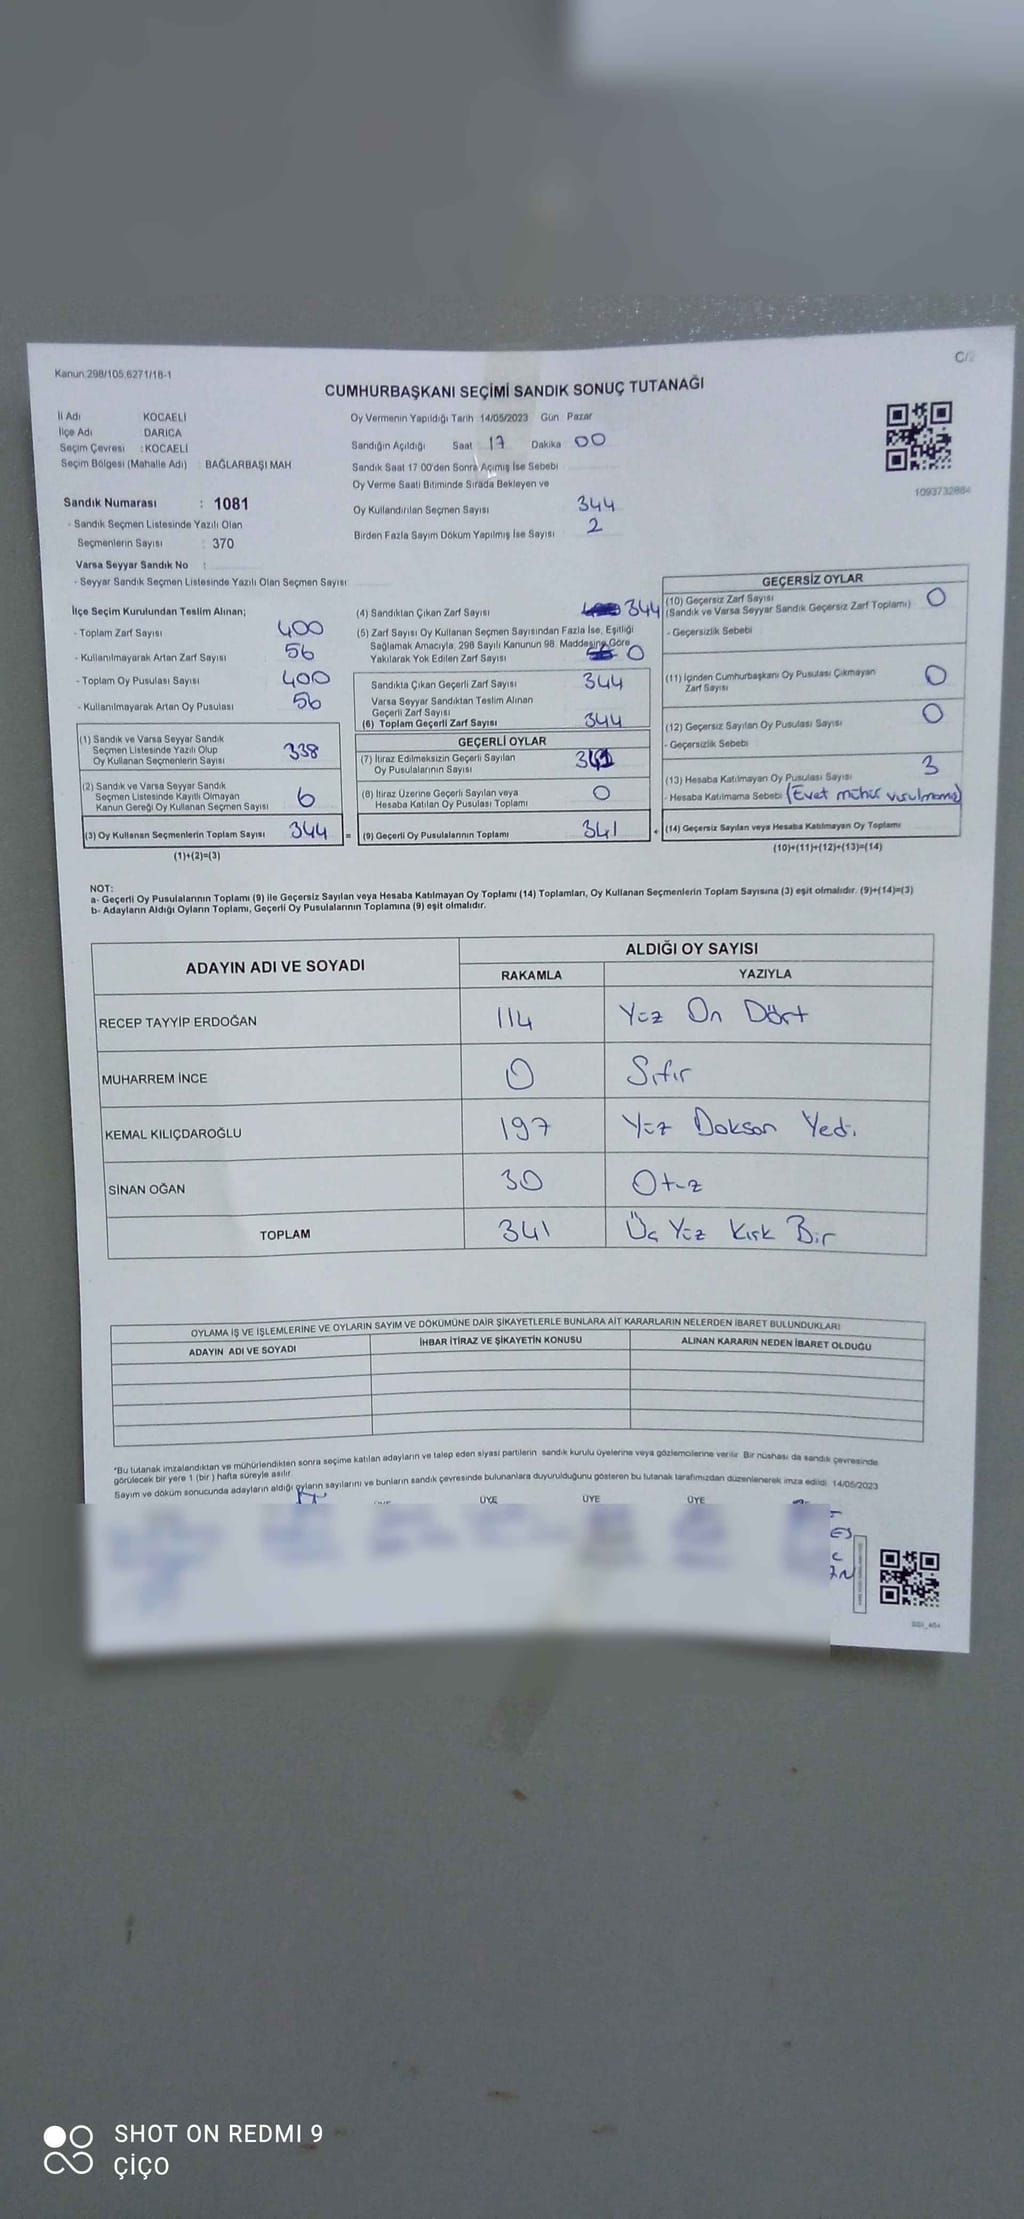 Kanun 298/105,6271/18-1
C/2
CUMHURBAŞKANI SEÇİMİ SANDIK SONUÇ TUTANAĞI
İl Adı KOCAELİ
İlçe Adı DARICA
Seçim Çevresi : KOCAELİ
Seçim Bölgesi (Mahalle Adı) BAĞLARBAŞI MAH
Oy Vermenin Yapıldığı Tarih 14/05/2023 Gün Pazar
Sandığın Açıldığı Saat 17 Dakika 00
Sandık Saat 17 00'den Sonra Açılmış İse Sebebi
Oy Verme Saati Bitiminde Sırada Bekleyen ve
Oy Kullandırılan Seçmen Sayısı 344
Birden Fazla Sayım Döküm Yapılmış İse Sayısı 2
1093732884
Sandık Numarası : 1081
- Sandık Seçmen Listesinde Yazılı Olan
Seçmenlerin Sayısı : 370
Varsa Seyyar Sandık No :
- Seyyar Sandık Seçmen Listesinde Yazılı Olan Seçmen Sayısı
İlçe Seçim Kurulundan Teslim Alınan;
- Toplam Zarf Sayısı 400
- Kullanılmayarak Artan Zarf Sayısı 56
- Toplam Oy Pusulası Sayısı 400
- Kullanılmayarak Artan Oy Pusulası 56
(1) Sandık ve Varsa Seyyar Sandık
Seçmen Listesinde Yazılı Olup
Oy Kullanan Seçmenlerin Sayısı 338
(2) Sandık ve Varsa Seyyar Sandık
Seçmen Listesinde Kayıtlı Olmayan
Kanun Gereği Oy Kullanan Seçmen Sayısı 6
(3) Oy Kullanan Seçmenlerin Toplam Sayısı 344 =
(1)+(2)=(3)
(4) Sandıktan Çıkan Zarf Sayısı 344
(5) Zarf Sayısı Oy Kullanan Seçmen Sayısından Fazla İse, Eşitliği
Sağlamak Amacıyla, 298 Sayılı Kanunun 98. Maddesine Göre
Yakılarak Yok Edilen Zarf Sayısı 0
Sandıkta Çıkan Geçerli Zarf Sayısı 344
Varsa Seyyar Sandıktan Teslim Alınan
Geçerli Zarf Sayısı
(6) Toplam Geçerli Zarf Sayısı 344
GEÇERLİ OYLAR
(7) İtiraz Edilmeksizin Geçerli Sayılan
Oy Pusulalarının Sayısı 341
(8) İtiraz Üzerine Geçerli Sayılan veya
Hesaba Katılan Oy Pusulası Toplamı 0
(9) Geçerli Oy Pusulalarının Toplamı 341 +
GEÇERSİZ OYLAR
(10) Geçersiz Zarf Sayısı
(Sandık ve Varsa Seyyar Sandık Geçersiz Zarf Toplamı) 0
- Geçersizlik Sebebi
(11) İçinden Cumhurbaşkanı Oy Pusulası Çıkmayan
Zarf Sayısı 0
(12) Geçersiz Sayılan Oy Pusulası Sayısı 0
- Geçersizlik Sebebi
(13) Hesaba Katılmayan Oy Pusulası Sayısı 3
- Hesaba Katılmama Sebebi (Evet mühür vurulmama)
(14) Geçersiz Sayılan veya Hesaba Katılmayan Oy Toplamı
(10)+(11)+(12)+(13)=(14)
NOT:
a- Geçerli Oy Pusulalarının Toplamı (9) ile Geçersiz Sayılan veya Hesaba Katılmayan Oy Toplamı (14) Toplamları, Oy Kullanan Seçmenlerin Toplam Sayısına (3) eşit olmalıdır. (9)+(14)=(3)
b- Adayların Aldığı Oyların Toplamı, Geçerli Oy Pusulalarının Toplamına (9) eşit olmalıdır.
ADAYIN ADI VE SOYADI ALDIĞI OY SAYISI
RAKAMLA YAZIYLA
RECEP TAYYİP ERDOĞAN 114 Yüz On Dört
MUHARREM İNCE 0 Sıfır
KEMAL KILIÇDAROĞLU 197 Yüz Doksan Yedi
SİNAN OĞAN 30 Otuz
TOPLAM 341 Üç Yüz Kırk Bir
OYLAMA İŞ VE İŞLEMLERİNE VE OYLARIN SAYIM VE DÖKÜMÜNE DAİR ŞİKAYETLERLE BUNLARA AİT KARARLARIN NELERDEN İBARET BULUNDUKLARI
ADAYIN ADI VE SOYADI İHBAR İTİRAZ VE ŞİKAYETİN KONUSU ALINAN KARARIN NEDEN İBARET OLDUĞU
*Bu tutanak imzalandıktan ve mühürlendikten sonra seçime katılan adayların ve talep eden siyasi partilerin sandık kurulu üyelerine veya gözlemcilerine verilir. Bir nüshası da sandık çevresinde
görülecek bir yere 1 (bir) hafta süreyle asılır.
Sayım ve döküm sonucunda adayların aldığı oyların sayılarını ve bunların sandık çevresinde bulunanlara duyurulduğunu gösteren bu tutanak tarafımızdan düzenlenerek imza edildi. 14/05/2023
ÜYE ÜYE ÜYE
SHOT ON REDMI 9
çiço